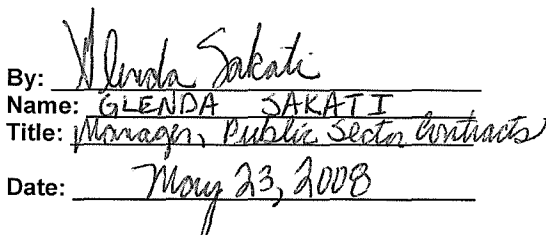 By: Glenda Sakati
Name: GLENDA SAKATI
Title: Manager, Public Sector Contracts
Date: May 23, 2008